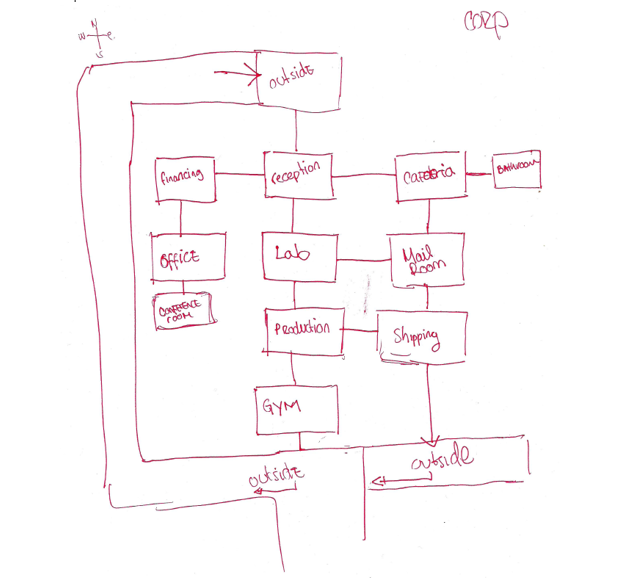 CORP
N
W E
S
outside
financing
reception
Cafeteria
BATHROOM
OFFICE
Lab
Mail
Room
CONFERENCE
ROOM
PRODUCTION
Shipping
GYM
outside
outside